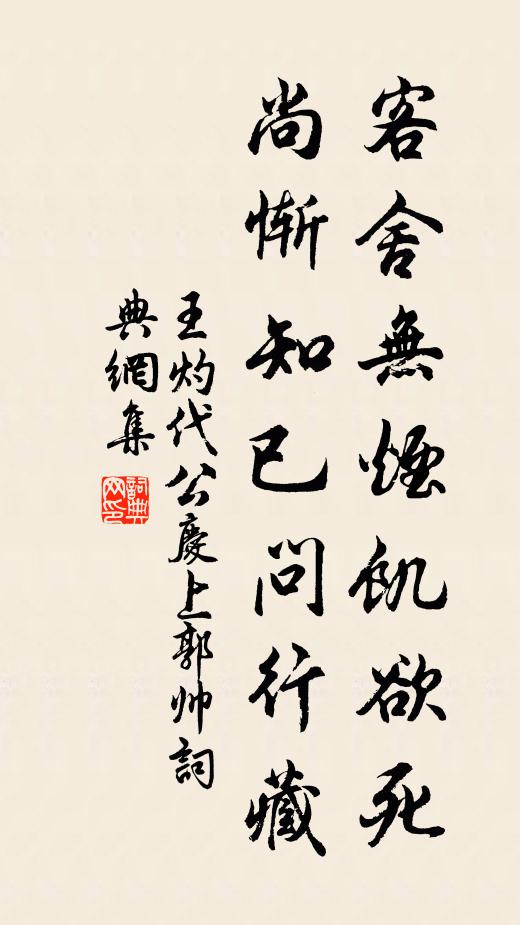 客舍無煙飢欲死
尚慚知己問行藏
王灼代公慶上郭帅詞
典網集
詞典
网印